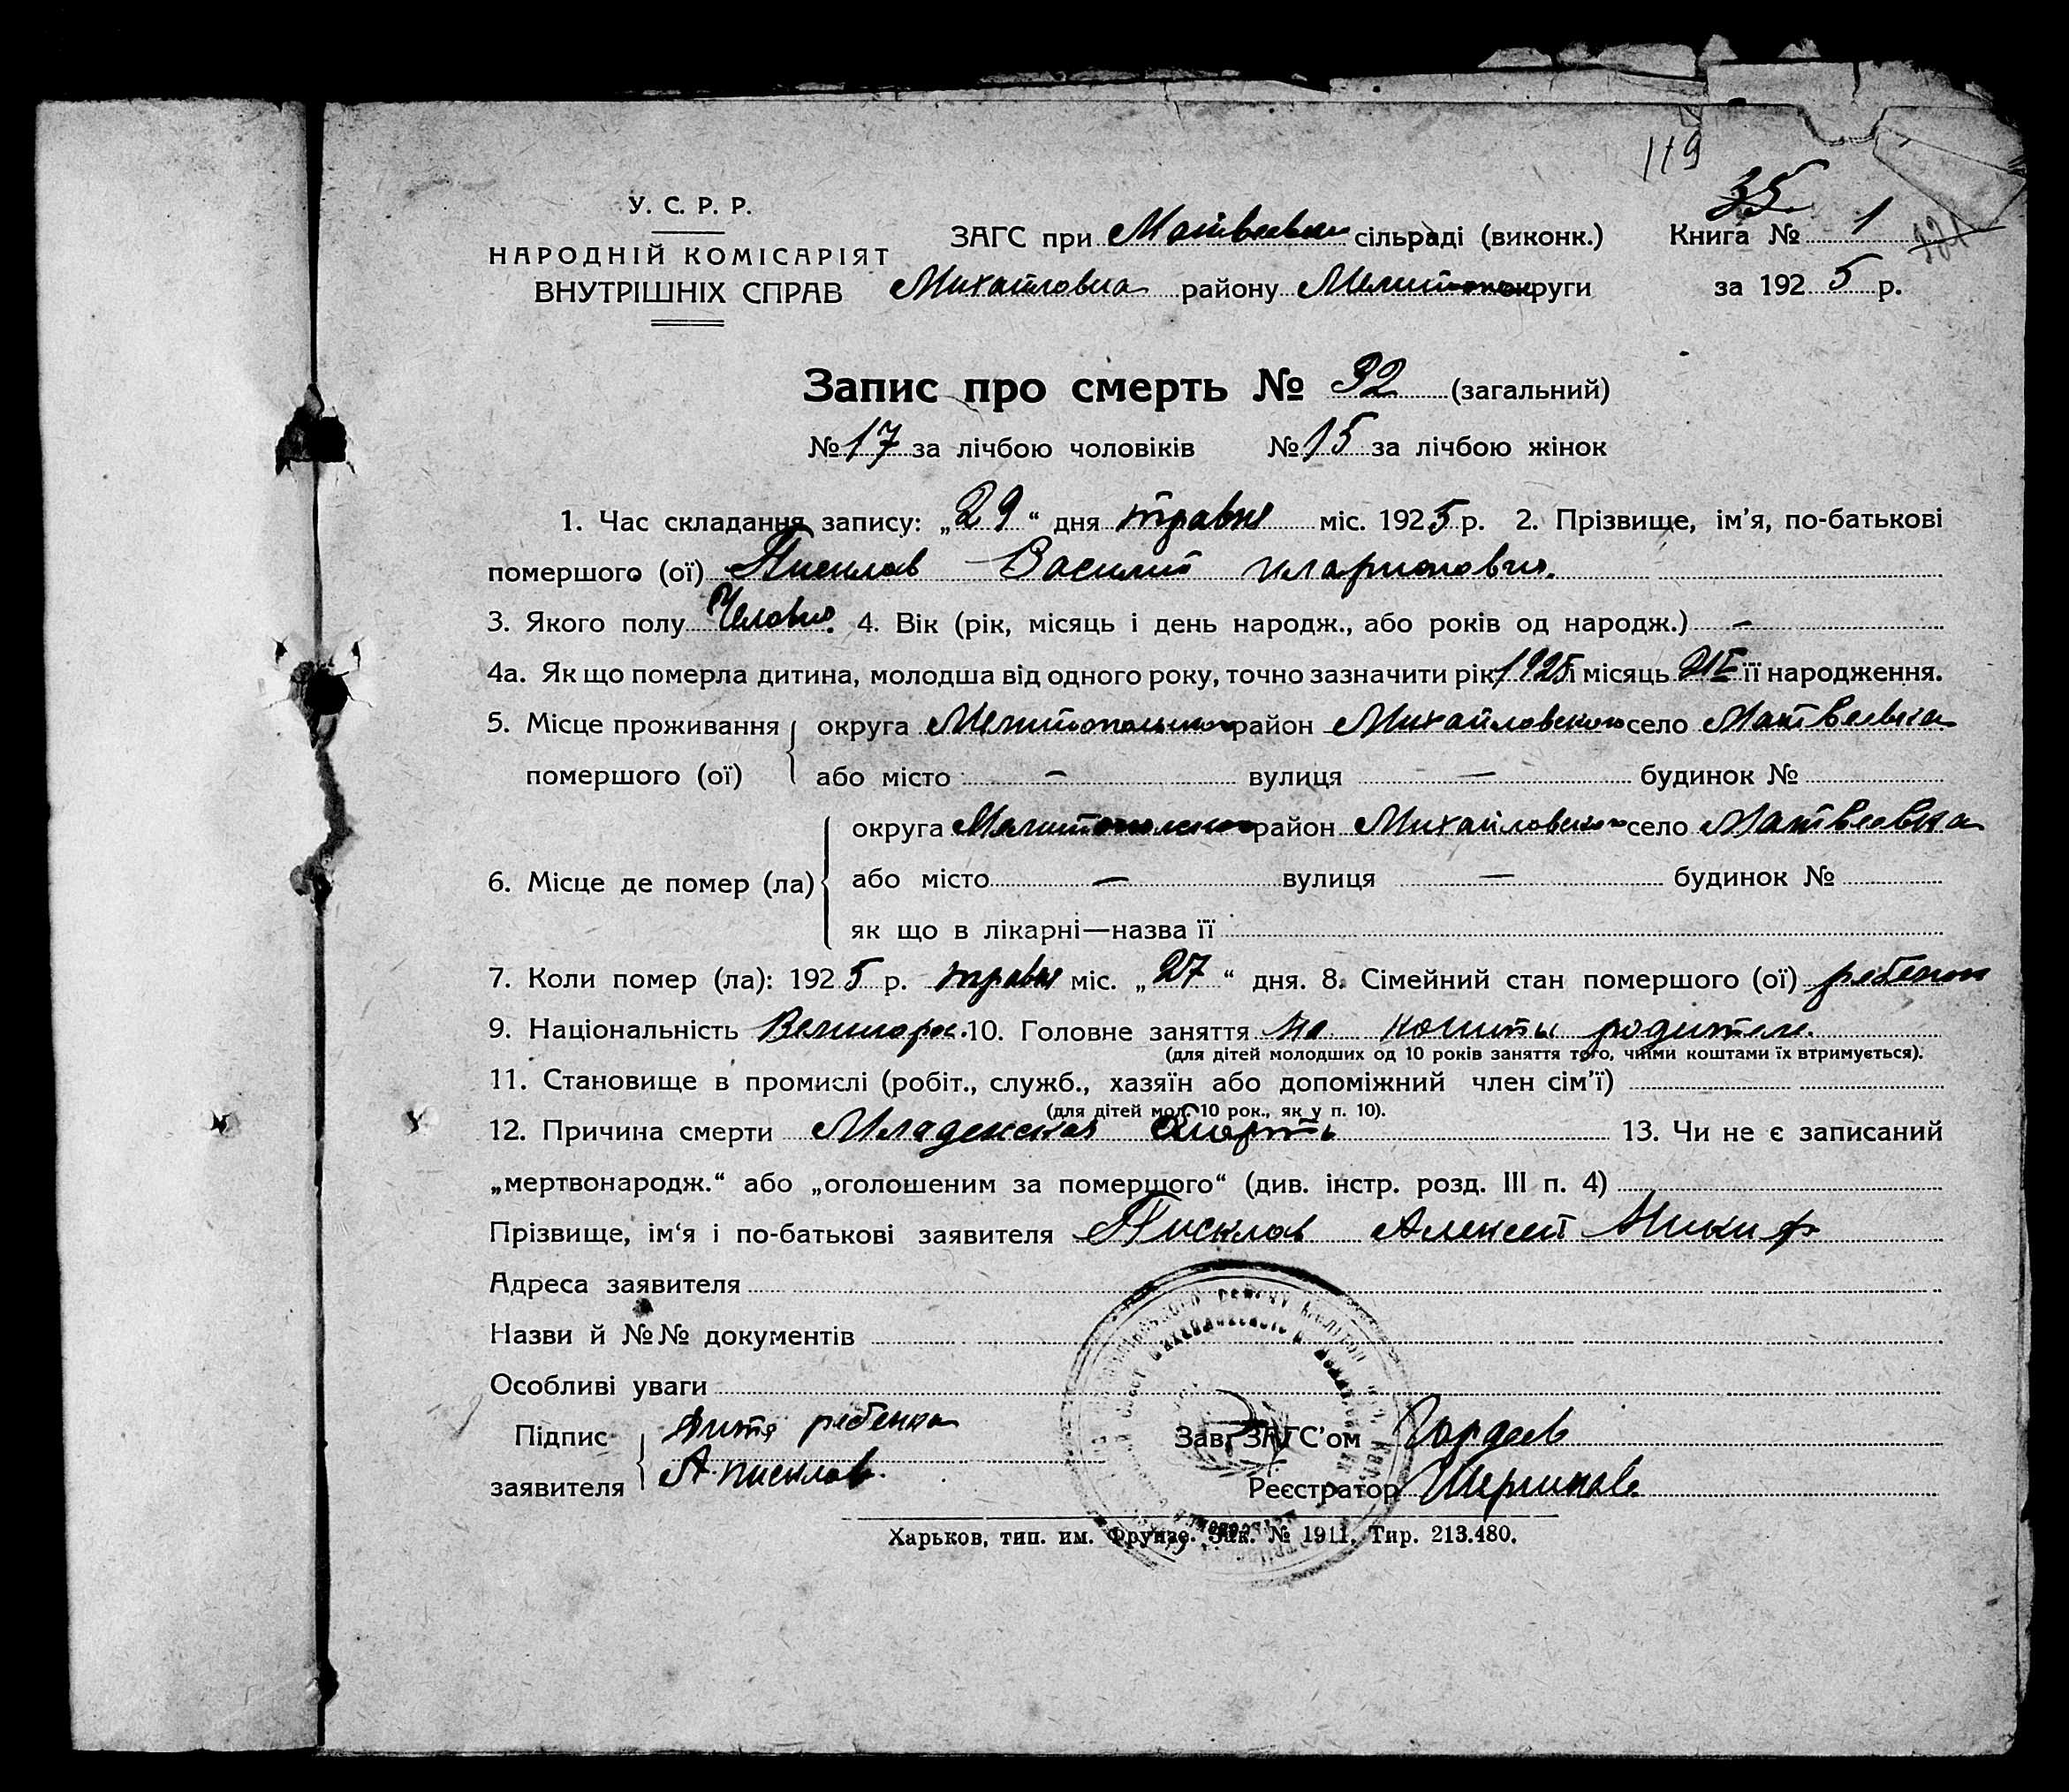 119
35
У. С. Р. Р.
НАРОДНІЙ КОМІСАРІЯТ
ВНУТРІШНІХ СПРАВ
ЗАГС при Матвеевка сільраді (виконк.) Книга № 1
Михайловка району Мелитопол округи за 1925 р.
Запис про смерть № 32 (загальний)
№ 17 за лічбою чоловіків № 15 за лічбою жінок
1. Час складання запису: „29“ дня травня міс. 1925 р. 2. Прізвище, ім’я, по-батькові
помершого (ої) Писклов Василий иларионович.
3. Якого полу Человіч. 4. Вік (рік, місяць і день народж., або років од народж.) —
4а. Як що померла дитина, молодша від одного року, точно зазначити рік 1925 і місяць її народження.
5. Місце проживання округа Мелитопольского район Михайловского село Матвеевка
помершого (ої) або місто — вулиця — будинок №
округа Мелитополского район Михайловского село Матвеевка
6. Місце де помер (ла) або місто — вулиця — будинок №
як що в лікарні—назва її
7. Коли помер (ла): 1925 р. травня міс. „27“ дня. 8. Сімейний стан помершого (ої) ребенок
9. Національність Великорос. 10. Головне заняття на кошты родителе.
(для дітей молодших од 10 років заняття того, чиїми коштами їх втримується).
11. Становище в промислі (робіт., служб., хазяїн або допоміжний член сім’ї)
(для дітей мол. 10 рок., як у п. 10).
12. Причина смерти Младенская Смерть 13. Чи не є записаний
„мертвонародж.“ або „оголошеним за померщого“ (див. інстр. розд. III п. 4)
Прізвище, ім‘я і по-батькові заявителя Писклов Алексей Никиф
Адреса заявителя
Назви й №№ документів
Особливі уваги
Підпис ребенка Зав. ЗАГС’ом Гордеев
заявителя А Писклов. Реєстратор
Харьков, тип. им. Фрунзе. Зак. № 1911. Тир. 213.480.